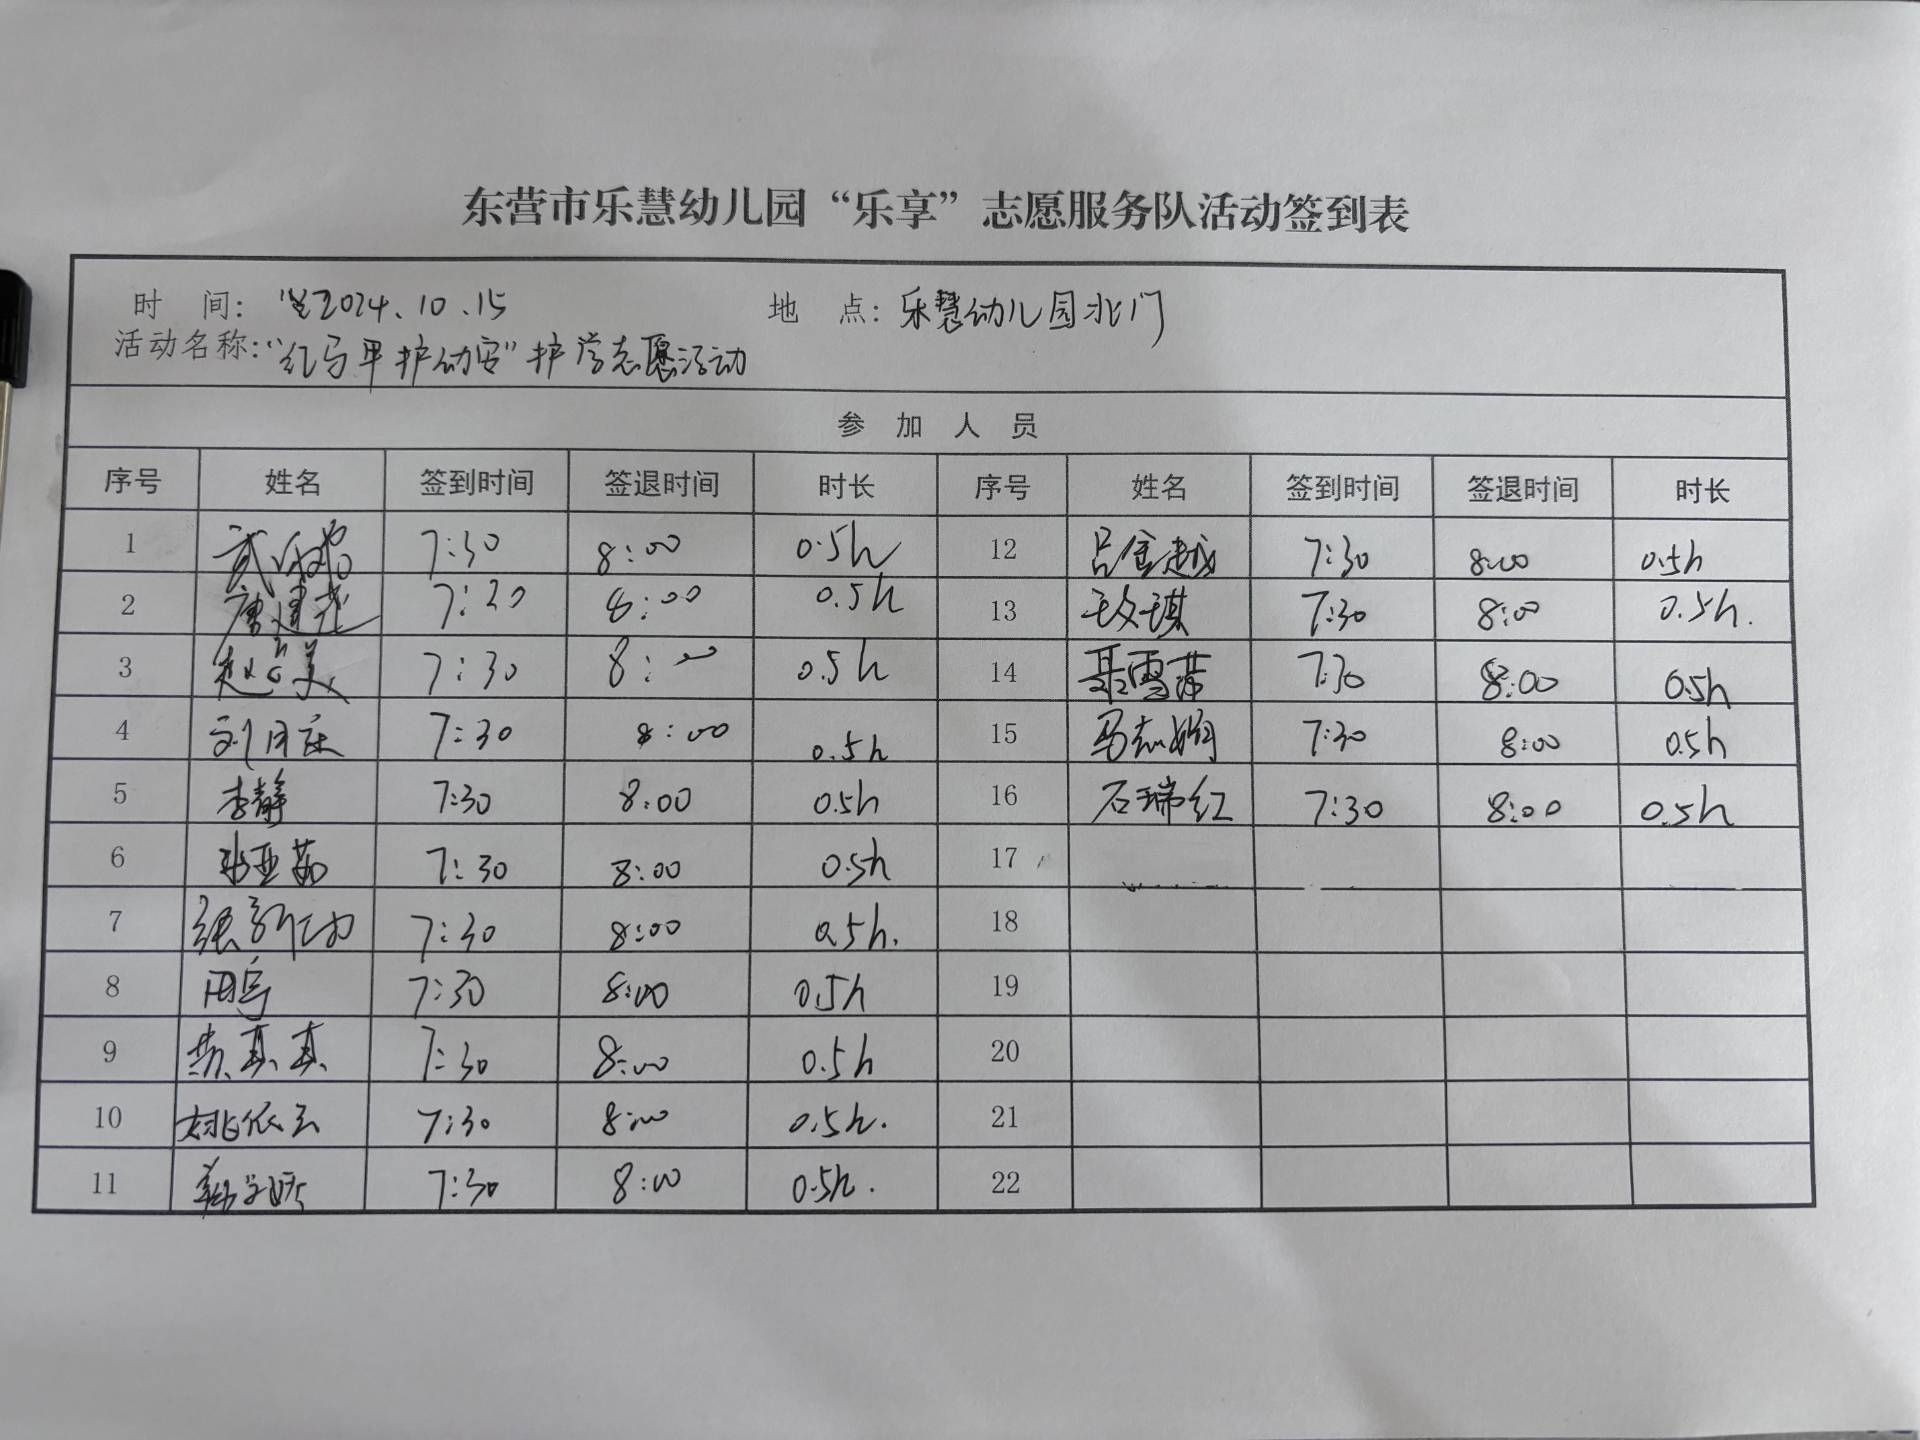 东营市乐慧幼儿园“乐享”志愿服务队活动签到表
时 间: 2024.10.15 地 点: 乐慧幼儿园北门
活动名称:“红马甲护幼安”护学志愿活动
参 加 人 员
序号 姓名 签到时间 签退时间 时长 序号 姓名 签到时间 签退时间 时长
1 7:30 8:00 0.5h 12 吕金越 7:30 8:00 0.5h
2 7:30 8:00 0.5h 13 7:30 8:00 0.5h.
3 7:30 8:00 0.5h 14 聂雪芾 7:30 8:00 0.5h
4 刘月庆 7:30 8:00 0.5h 15 马志娟 7:30 8:00 0.5h
5 李静 7:30 8:00 0.5h 16 石瑞红 7:30 8:00 0.5h
6 张亚茹 7:30 8:00 0.5h 17
7 7:30 8:00 0.5h. 18
8 7:30 8:00 0.5h 19
9 真真 7:30 8:00 0.5h 20
10 姚依云 7:30 8:00 0.5h. 21
11 7:30 8:00 0.5h. 22